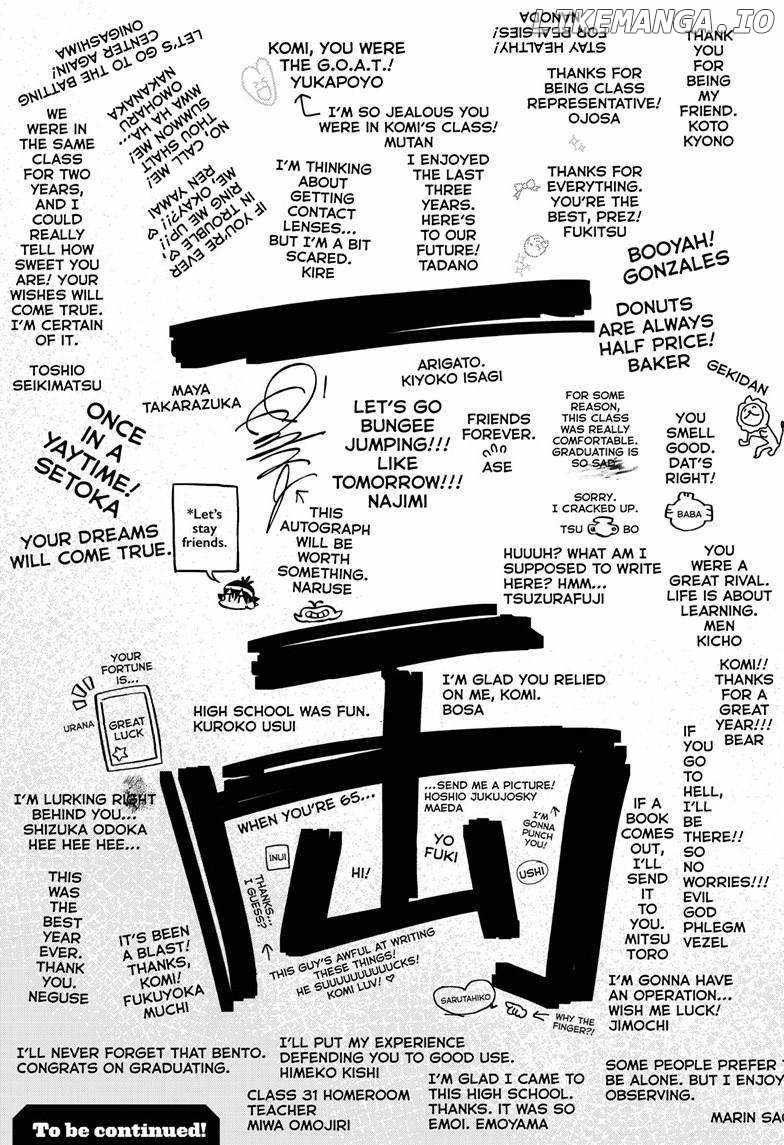 LIKEMANGA.IO
LET'S GO TO THE BATTING
CENTER AGAIN!
ONIGASHIMA
KOMI, YOU WERE
THE G.O.A.T.!
YUKAPOYO
STAY HEALTHY!
FOR REALSIES!
NANODA
THANK
YOU
FOR
BEING
MY
FRIEND.
KOTO
KYONO
THANKS FOR
BEING CLASS
REPRESENTATIVE!
OJOSA
I'M SO JEALOUS YOU
WERE IN KOMI'S CLASS!
MUTAN
WE
WERE IN
THE SAME
CLASS
FOR TWO
YEARS,
AND I
COULD
REALLY
TELL HOW
SWEET YOU
ARE! YOUR
WISHES WILL
COME TRUE.
I'M CERTAIN
OF IT.
TOSHIO
SEIKIMATSU
NO, CALL ME!
THOU SHALT
SUMMON ME!
MWA HA HA...
OMOHARU
NAKANAKA
IF YOU'RE EVER
IN TROUBLE,
RING ME UP!!
ME, OKAY?!!
REN YAMAI
I'M THINKING
ABOUT
GETTING
CONTACT
LENSES...
BUT I'M A BIT
SCARED.
KIRE
I ENJOYED
THE LAST
THREE
YEARS.
HERE'S
TO OUR
FUTURE!
TADANO
THANKS FOR
EVERYTHING.
YOU'RE THE
BEST, PREZ!
FUKITSU
BOOYAH!
GONZALES
DONUTS
ARE ALWAYS
HALF PRICE!
BAKER
MAYA
TAKARAZUKA
ARIGATO.
KIYOKO ISAGI
GEKIDAN
ONCE
IN A
YAYTIME!
SETOKA
LET'S GO
BUNGEE
JUMPING!!!
LIKE
TOMORROW!!!
NAJIMI
FRIENDS
FOREVER.
ASE
FOR SOME
REASON,
THIS CLASS
WAS REALLY
COMFORTABLE.
GRADUATING IS
SO SAD.
SORRY.
I CRACKED UP.
TSU BO
YOU
SMELL
GOOD.
DAT'S
RIGHT!
BABA
YOUR DREAMS
WILL COME TRUE.
*Let's
stay
friends.
THIS
AUTOGRAPH
WILL BE
WORTH
SOMETHING.
NARUSE
HUUUH? WHAT AM I
SUPPOSED TO WRITE
HERE? HMM...
TSUZURAFUJI
YOU
WERE A
GREAT RIVAL.
LIFE IS ABOUT
LEARNING.
MEN
KICHO
YOUR
FORTUNE
IS...
URANA
GREAT
LUCK
HIGH SCHOOL WAS FUN.
KUROKO USUI
I'M GLAD YOU RELIED
ON ME, KOMI.
BOSA
KOMI!!
THANKS
FOR A
GREAT
YEAR!!!
BEAR
IF
YOU
GO
TO
HELL,
I'LL
BE
THERE!!
SO
NO
WORRIES!!!
EVIL
GOD
PHLEGM
VEZEL
I'M LURKING RIGHT
BEHIND YOU...
SHIZUKA ODOKA
HEE HEE HEE...
WHEN YOU'RE 65...
...SEND ME A PICTURE!
HOSHIO JUKUJOSKY
MAEDA
I'M
GONNA
PUNCH
YOU!
USHI
INUI
HI!
YO
FUKI
THANKS...
I GUESS?
THIS GUY'S AWFUL AT WRITING
THESE THINGS!
HE SUUUUUUUUUCKS!
KOMI LUV! ♡
IF A
BOOK
COMES
OUT,
I'LL
SEND
IT
TO
YOU.
MITSU
TORO
THIS
WAS
THE
BEST
YEAR
EVER.
THANK
YOU.
NEGUSE
IT'S BEEN
A BLAST!
THANKS,
KOMI!
FUKUYOKA
MUCHI
SARUTAHIKO
WHY THE
FINGER?!
I'M GONNA HAVE
AN OPERATION...
WISH ME LUCK!
JIMOCHI
I'LL NEVER FORGET THAT BENTO.
CONGRATS ON GRADUATING.
I'LL PUT MY EXPERIENCE
DEFENDING YOU TO GOOD USE.
HIMEKO KISHI
CLASS 31 HOMEROOM
TEACHER
MIWA OMOJIRI
I'M GLAD I CAME TO
THIS HIGH SCHOOL.
THANKS. IT WAS SO
EMOI. EMOYAMA
SOME PEOPLE PREFER
BE ALONE. BUT I ENJOY
OBSERVING.
MARIN
To be continued!